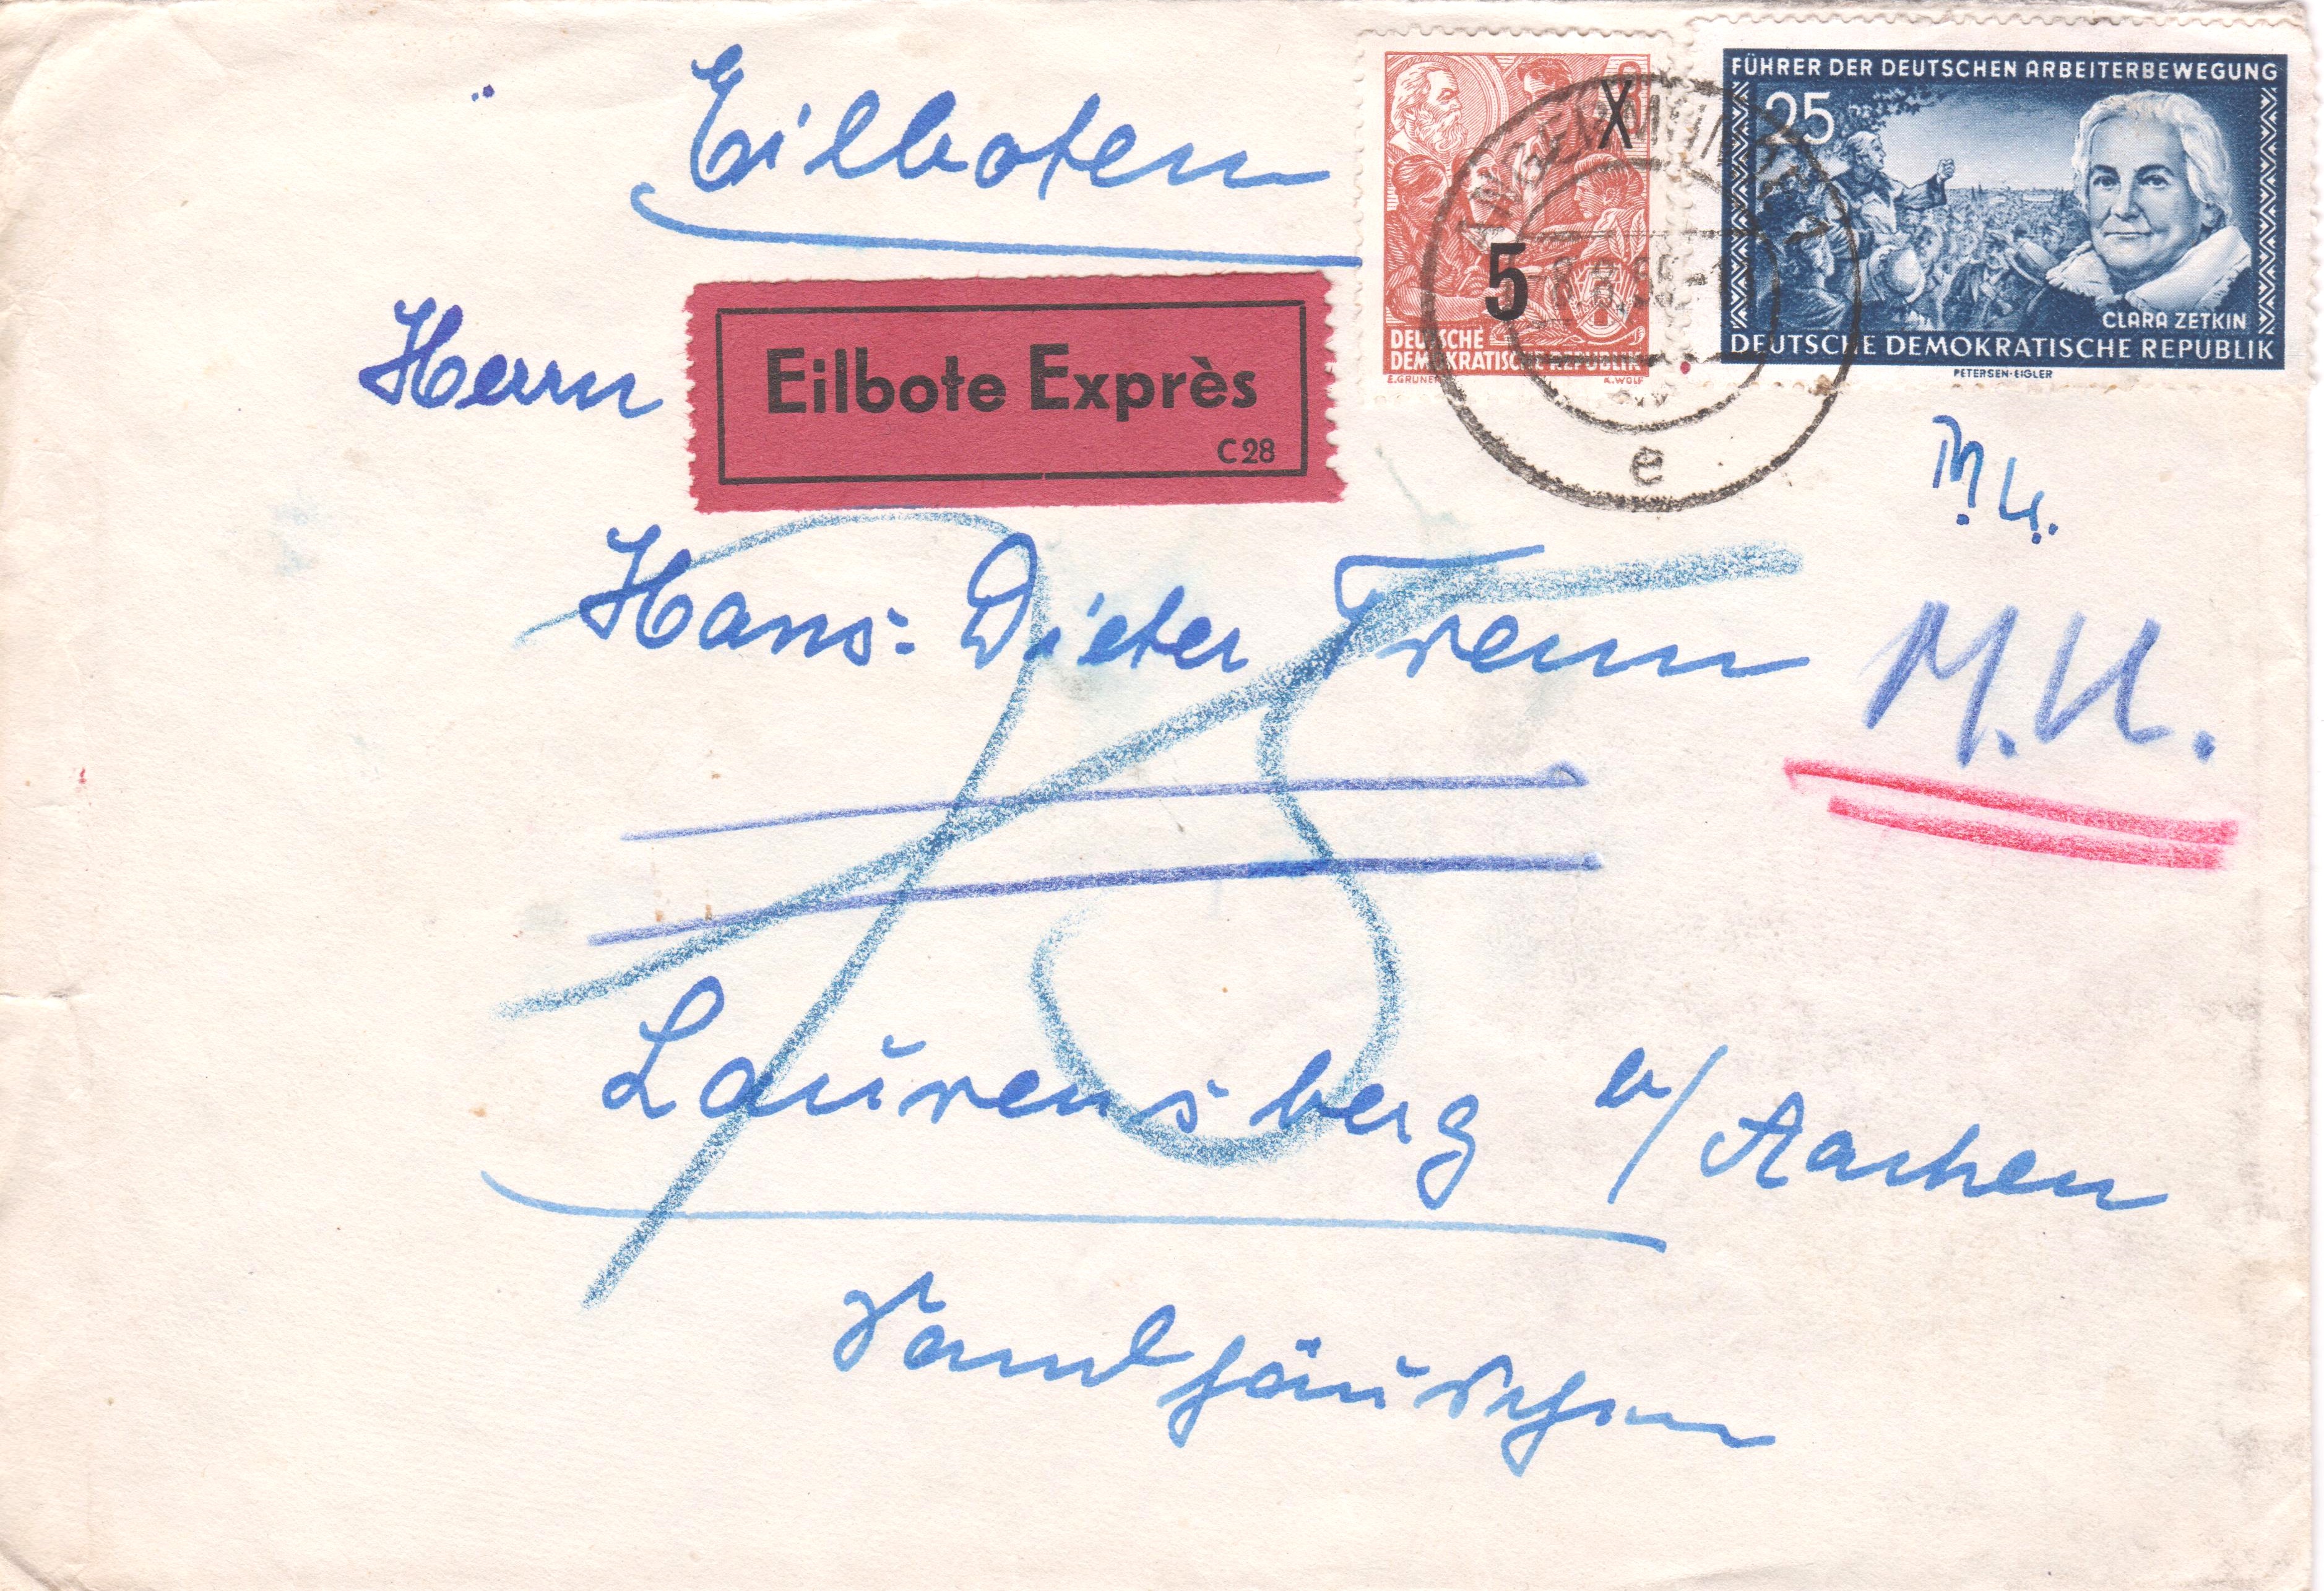 Eilboten
FÜHRER DER DEUTSCHEN ARBEITERBEWEGUNG
25
CLARA ZETKIN
DEUTSCHE DEMOKRATISCHE REPUBLIK
PETERSEN-EIGLER
8
X
5
DEUTSCHE
DEMOKRATISCHE REPUBLIK
E.GRUNER K.WOLF
ANGERMÜNDE
e
Herrn
Eilbote Exprès
C 28
M.U.
Hans-Dieter Trenn
M.U.
Laurensberg b/Aachen
Vandhäuschen